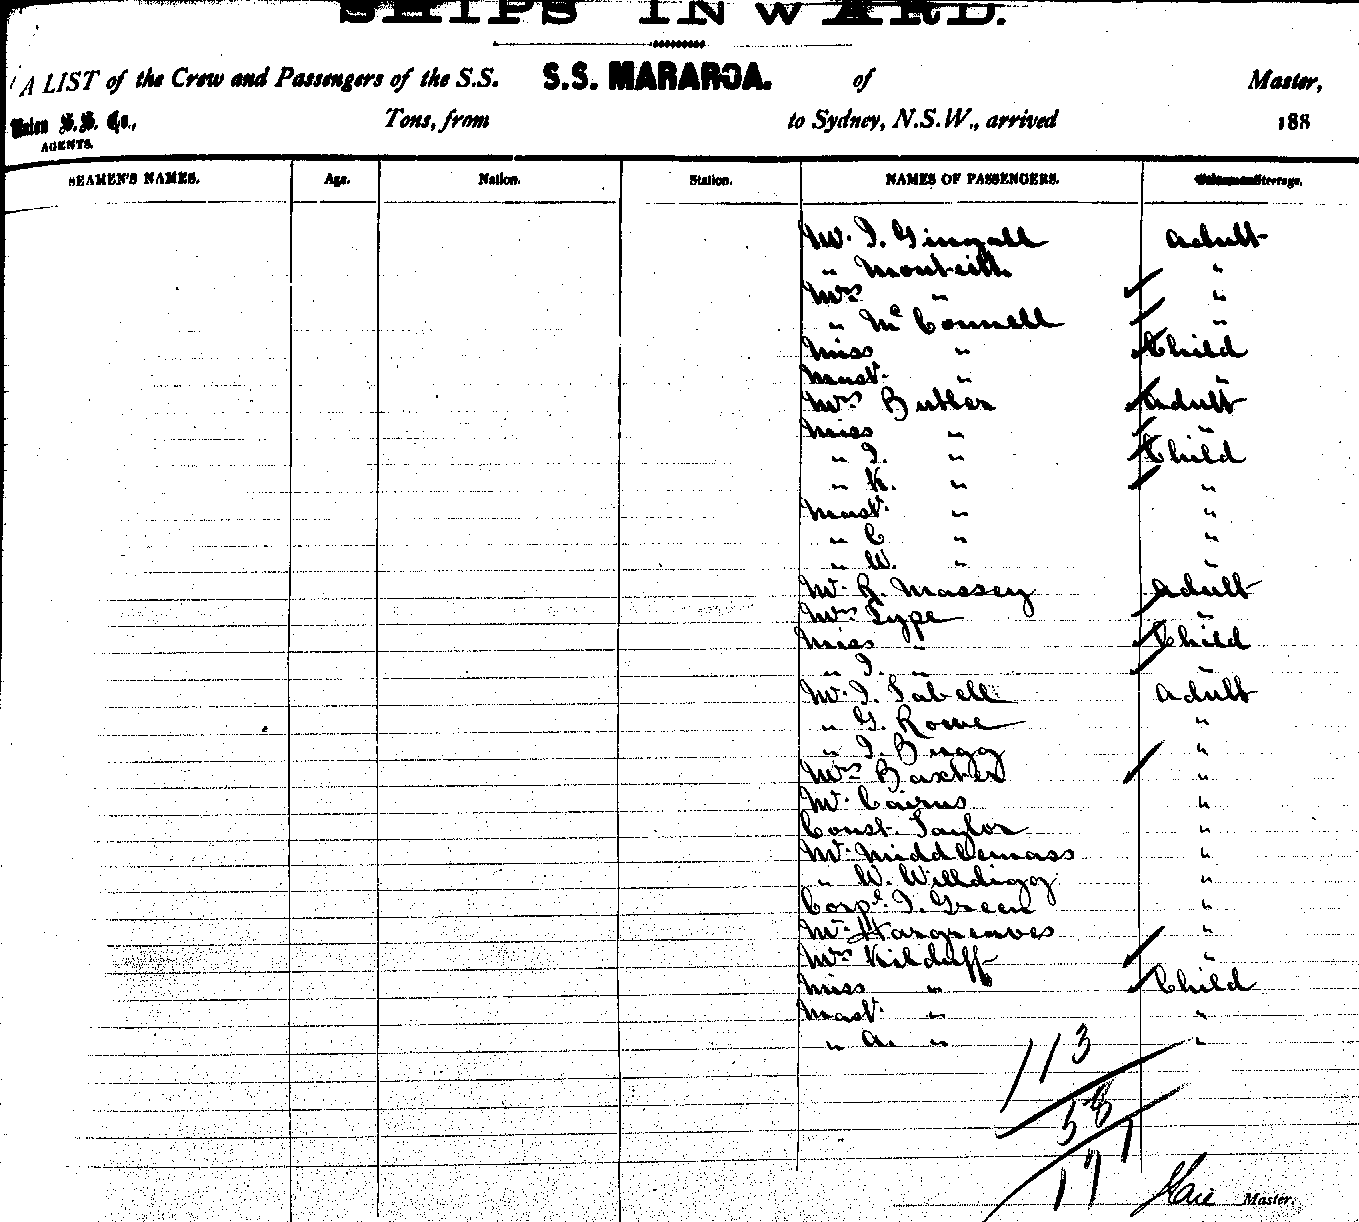 SHIPS INWARD.
A LIST of the Crew and Passengers of the S.S. S.S. MARAROA. of Master,
Union S.S. Co., Tons, from to Sydney, N.S.W., arrived 188
AGENTS.
SEAMEN'S NAMES. Age. Nation. Station. NAMES OF PASSENGERS. Steerage.
Mr. J. Gingall Adult
" Monteith "
Mrs " "
" McConnell "
Miss " Child
Mast. " "
Mrs Butler Adult
Miss " "
" I. " Child
" K. " "
Mast. " "
" C " "
" W. " "
Mr. R. Massey Adult
Mrs Type "
Miss " Child
" I. " "
Mr. J. Tabell Adult
" G. Rowe "
" J. Bugg "
Mrs Baxter "
Mr. Cairns "
Const. Taylor "
Mr. Middlemass "
" W. Willdigg "
Corpl. J. Green "
Mr. Hargreaves "
Mrs Kilduff "
Miss " Child
Mast. " "
" A. " "
113
58
171
Master.